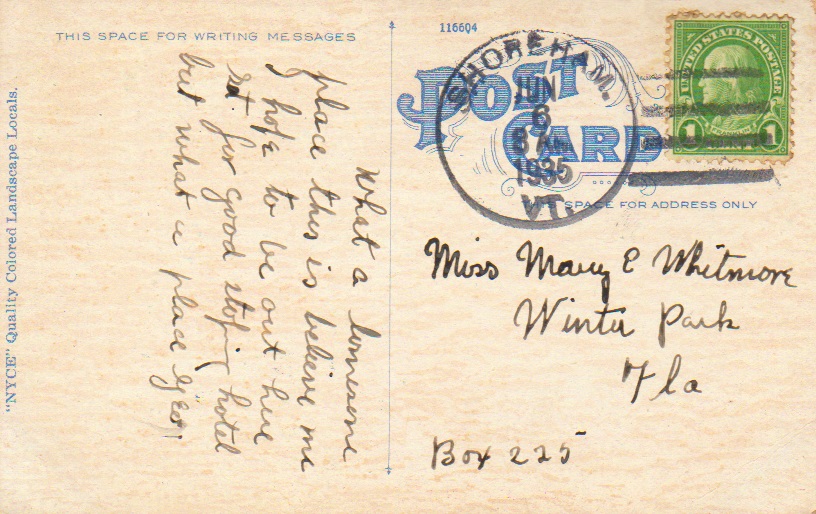 THIS SPACE FOR WRITING MESSAGES
116604
POST
CARD
SHOREHAM.
JUN
6
8 AM
1935
VT.
UNITED STATES POSTAGE
1 1
THIS SPACE FOR ADDRESS ONLY
"NYCE" Quality Colored Landscape Locals.
What a lonesome
place this is believe me
I hope to be out here
for good stoping hotel
but what a place
Miss Mary E Whitmore
Winter Park
Fla
Box 225